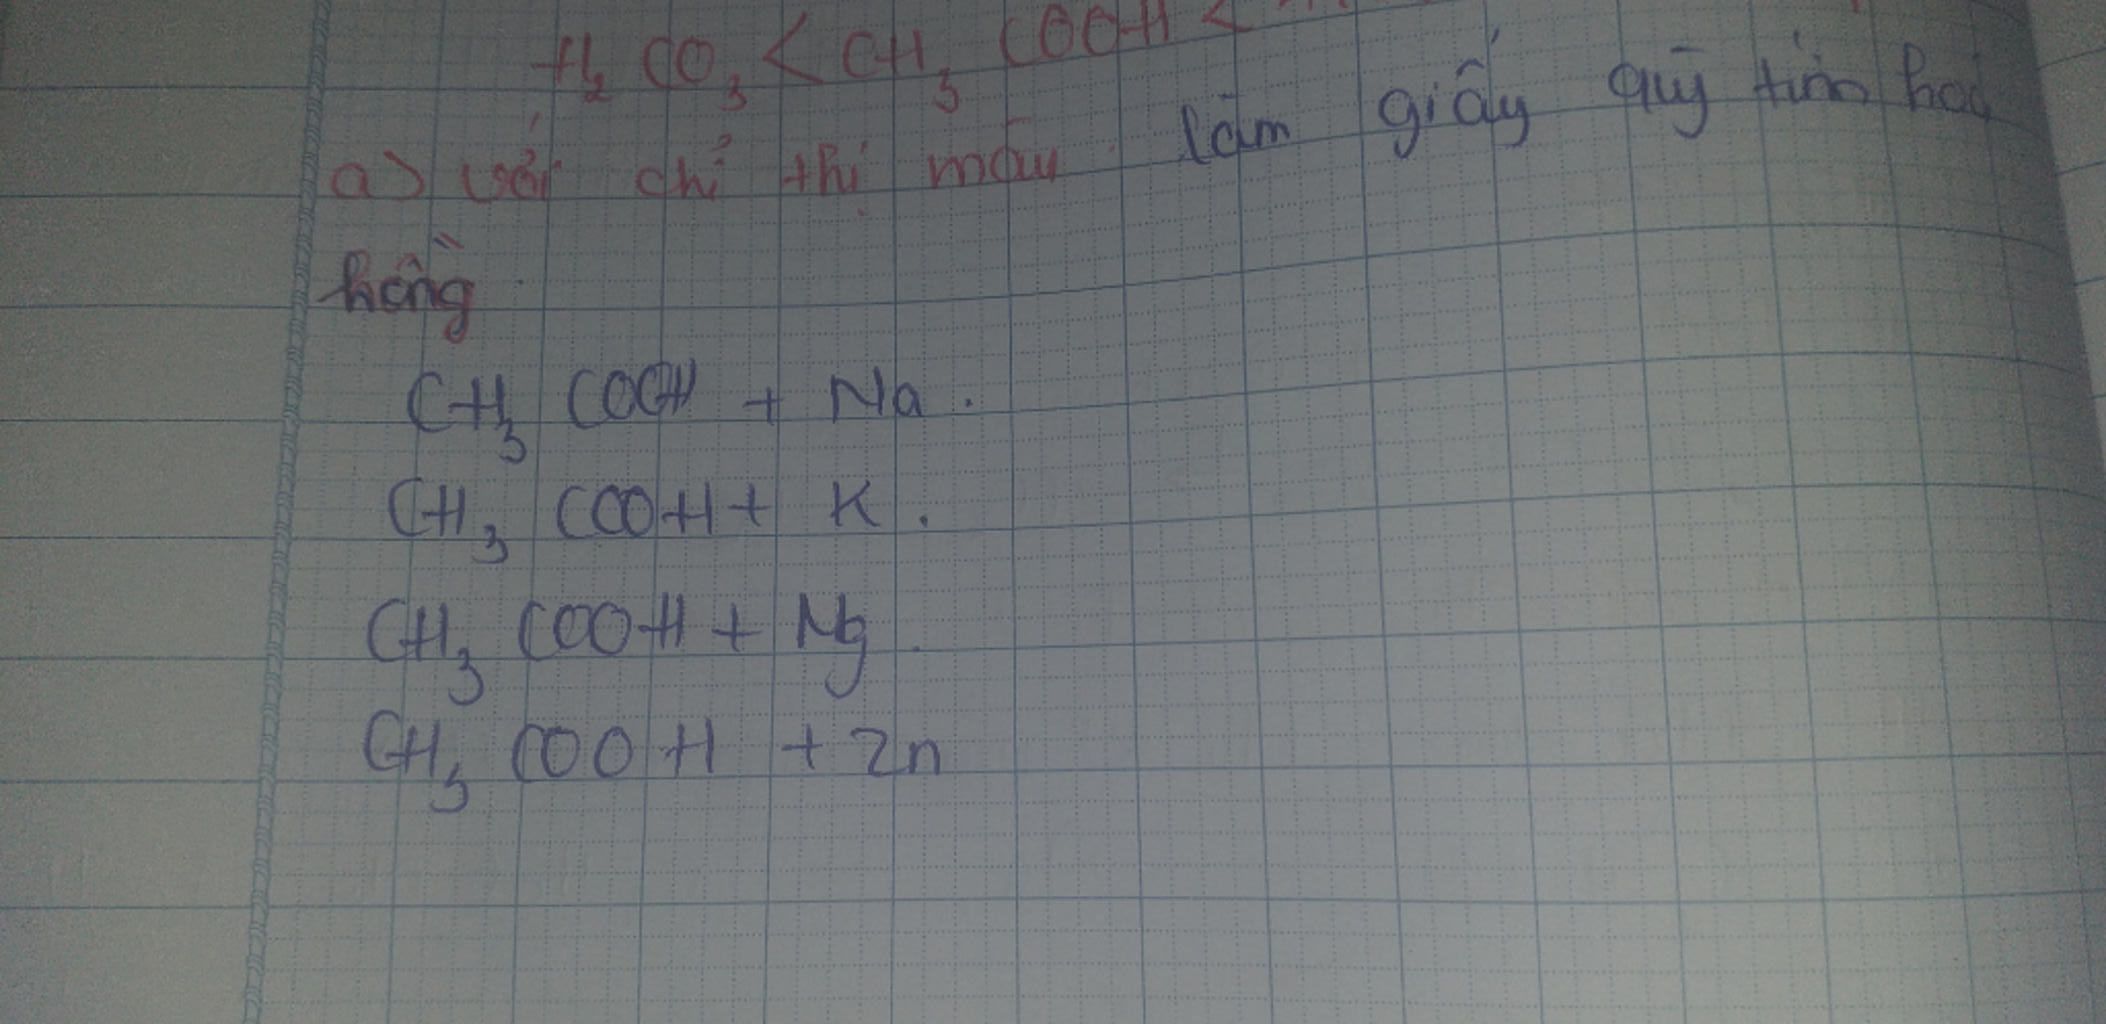 H₂CO₃ < CH₃COOH <
a) với chỉ thị màu làm giấy quỳ tím hoá
hồng
CH₃COOH + Na.
CH₃COOH + K.
CH₃COOH + Mg.
CH₃COOH + Zn